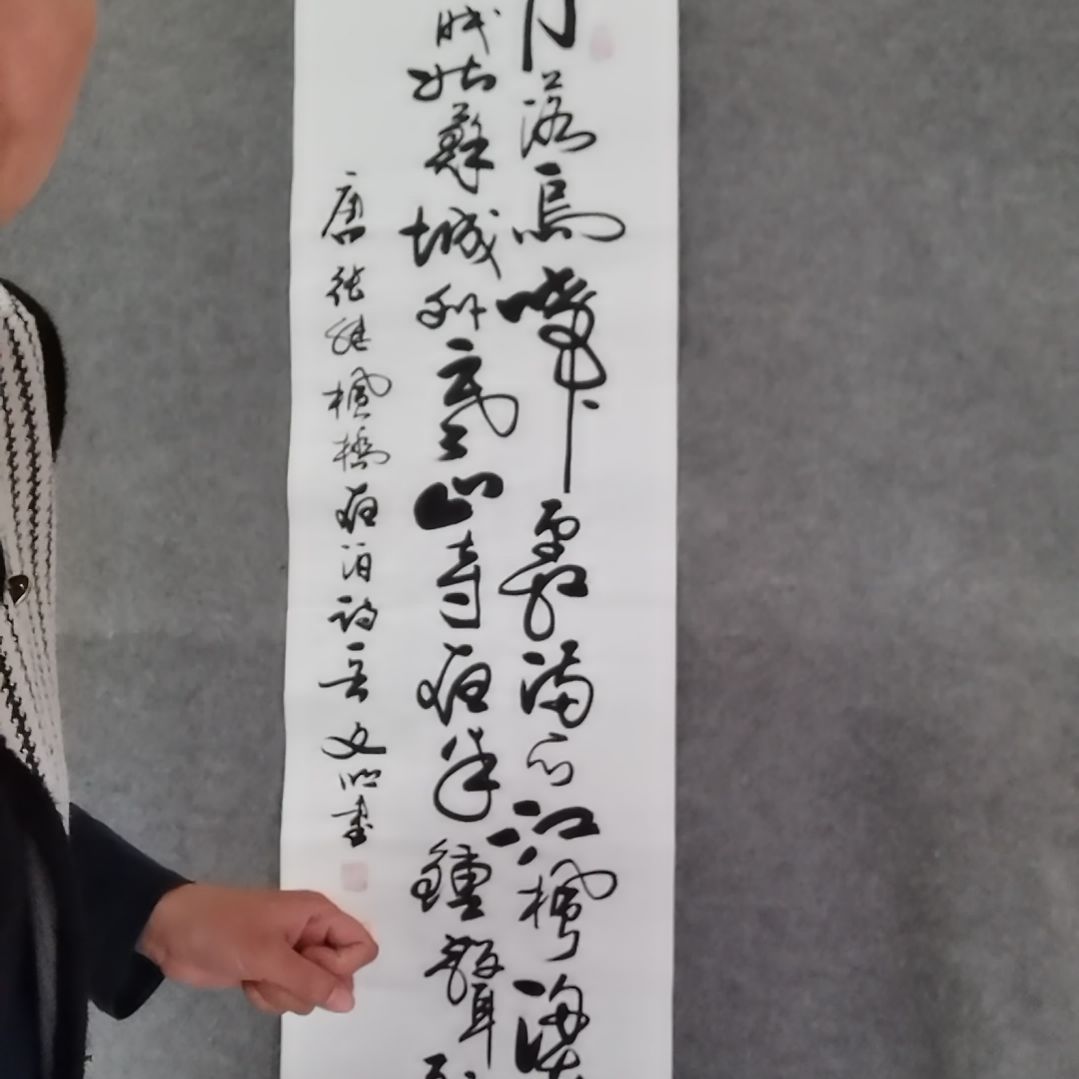 月落烏啼霜滿天江楓漁
眠姑蘇城外寒山寺夜半鐘聲到
唐張繼楓橋夜泊詩文明書